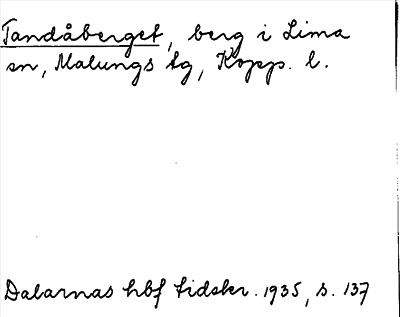 Tandåberget, berg i Lima
sn, Malungs tg, Kopp. l.
Dalarnas hbf tidskr. 1935, s. 137